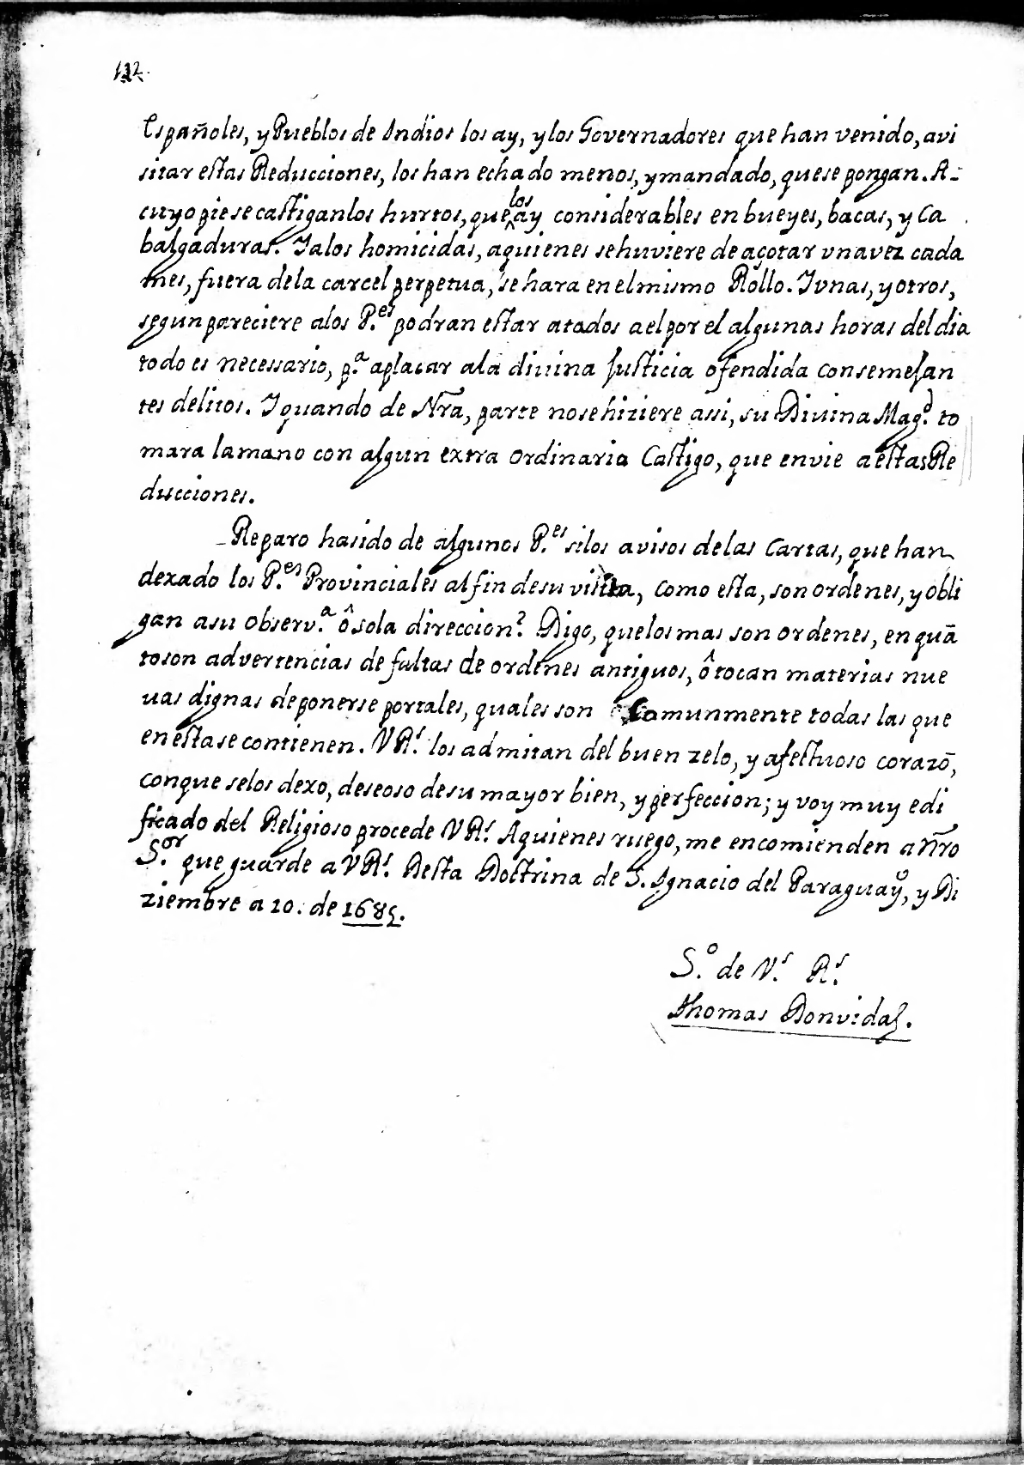 132.
Españoles, y Pueblos de Indios los ay, y los Governadores que han venido, avi
sitar estas Reducciones, los han echado menos, y mandado, que se pongan. A-
cuyo pie se castiganlos hurtos, que los ay considerables en bueyes, bacas, y Ca
balgaduras. Ialos homicidas, aquienes sehuviere de açotar vnavez cada
mes, fuera dela carcel perpetua, se hara en el mismo Rollo. Ivnas, y otros,
segun pareciere alos P.es podran estar atados a el por el algunas horas del dia
todo es necessario, p.a aplacar ala divina Justicia ofendida consemejan
tes delitos. Iquando de Nra, parte nosehiziere assi, su Divina Mag.d to
mara lamano con algun extra ordinario Castigo, que envie a estas Re
ducciones.
Reparo hasido de algunos P.es silos avisos delas Cartas, que han
dexado los P.es Provinciales alfin desu visita, como esta, son ordenes, y obli
gan asu observ.a ô sola direccion? Digo, quelos mas son ordenes, en quã
toson advertencias de faltas de ordenes antiguos, ô tocan materias nue
uas dignas deponerse portales, quales son Comunmente todas las que
en esta se contienen. V Rs. los admitan del buen zelo, y afectuoso corazõ,
conque selos dexo, deseoso desu mayor bien, y perfeccion; y voy muy edi
ficado del Religioso procede V Rs. Aquienes ruego, me encomienden a Nro
S.or que guarde a V Rs. Desta Doctrina de S. Ignacio del Paraguay, y Di
ziembre a 10. de 1685.
S.o de V.s R.s
Thomas Donvidas.